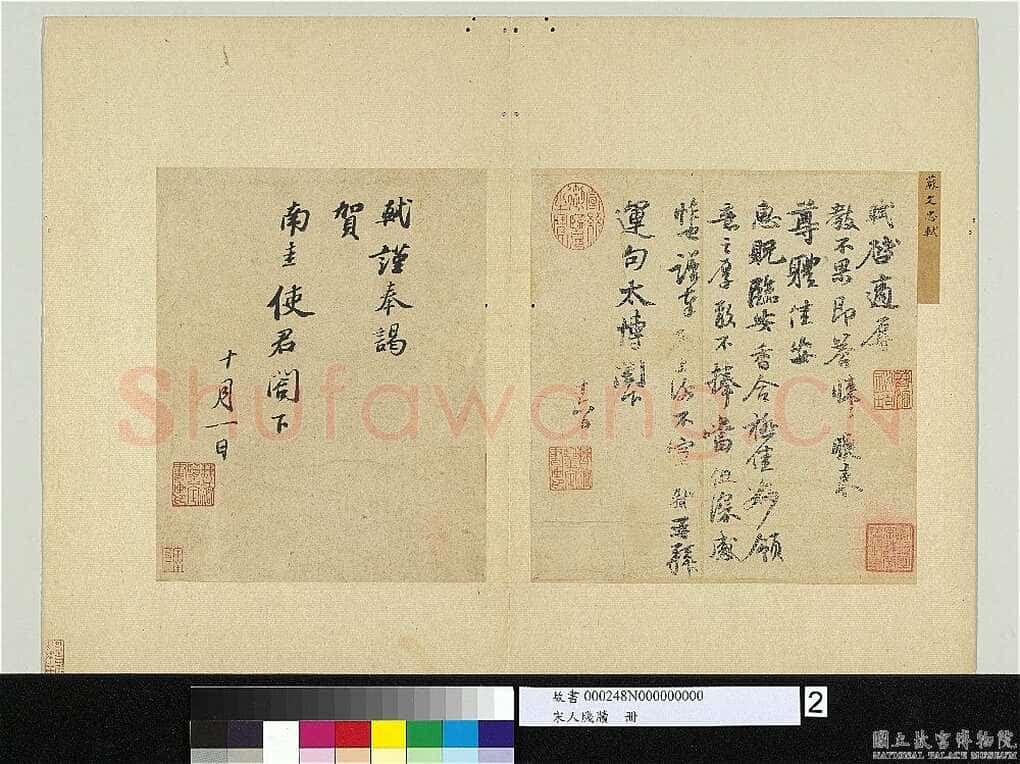 蘇文忠軾
軾啓適辱
教不果即荅悚悚晚來
尊體佳安
惠貺臨安香合極佳妙領
意之厚敢不捧當但深感
怍也謹奉啓上謝不宣軾再拜
運句太博閤下
軾謹奉謁
賀
南圭使君閤下
十月一日
Shufawang.CN
故書 000248N000000000
宋人牋牘 冊
2
國立故宮博物院
NATIONAL PALACE MUSEUM